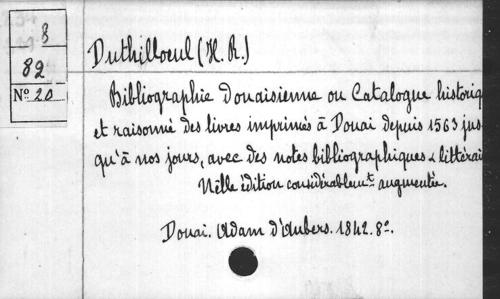 8
82
Nº 20
Duthilloeul (H. R.)
Bibliographie Douaisienne ou Catalogue historiq
et raisonné des livres imprimés à Douai depuis 1563 jus
qu'à nos jours, avec des notes bibliographiques & littérai
Nlle édition considérablemt augmentée.
Douai. Adam d'Aubers. 1842. 8º.